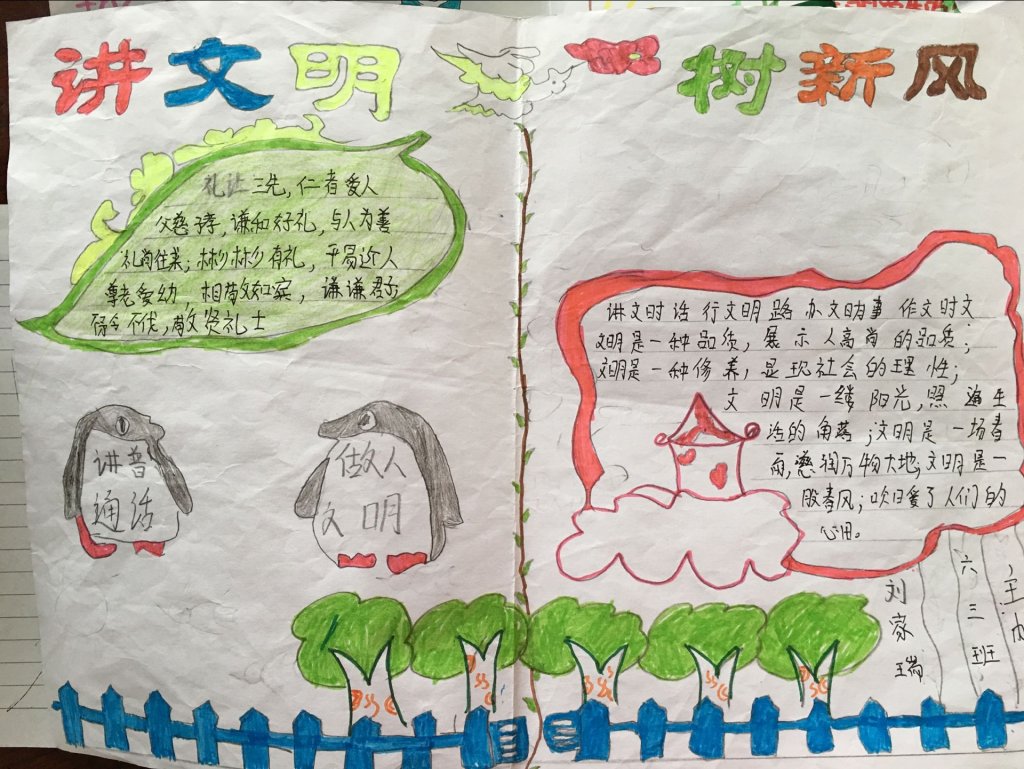 讲文明 树新风
礼让三先,仁者爱人
父慈 孝,谦和好礼,与人为善
礼尚往来;彬彬有礼,平易近人
尊老爱幼,相敬如宾,谦谦君子
不伐,敬贤礼士
讲普
通话
做人
文明
讲文明话 行文明路 办文明事 作文明文
文明是一种品质,展示人高尚的品质;
文明是一种修养,显现社会的理性;
文明是一缕阳光,照遍生
活的角落;文明是一场春
雨,慈润万物大地;文明是一
股春风;吹日爱了人们的
心田。
刘家瑞
六三班